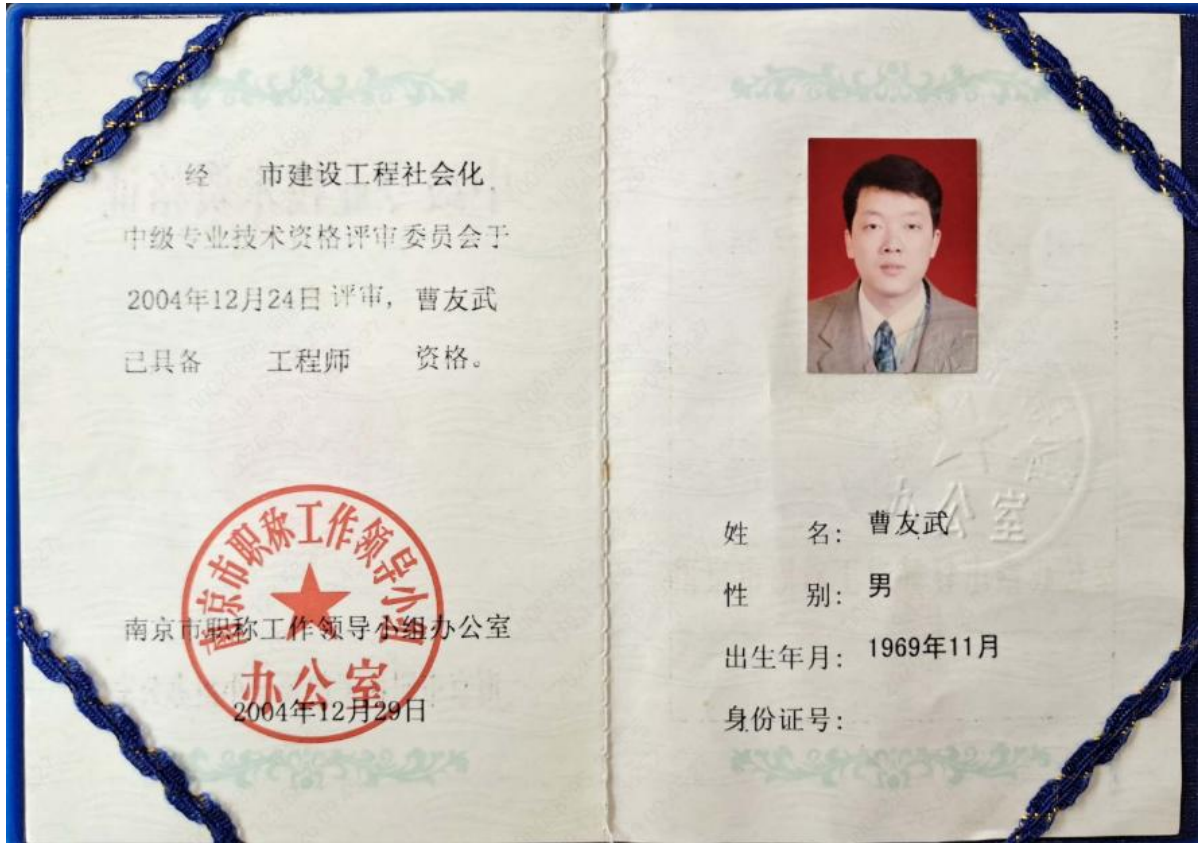 经 市建设工程社会化
中级专业技术资格评审委员会于
2004年12月24日评审，曹友武
已具备 工程师 资格。
南京市职称工作领导小组
办公室
南京市职称工作领导小组办公室
2004年12月29日
办公室
姓 名：曹友武
性 别：男
出生年月：1969年11月
身份证号：